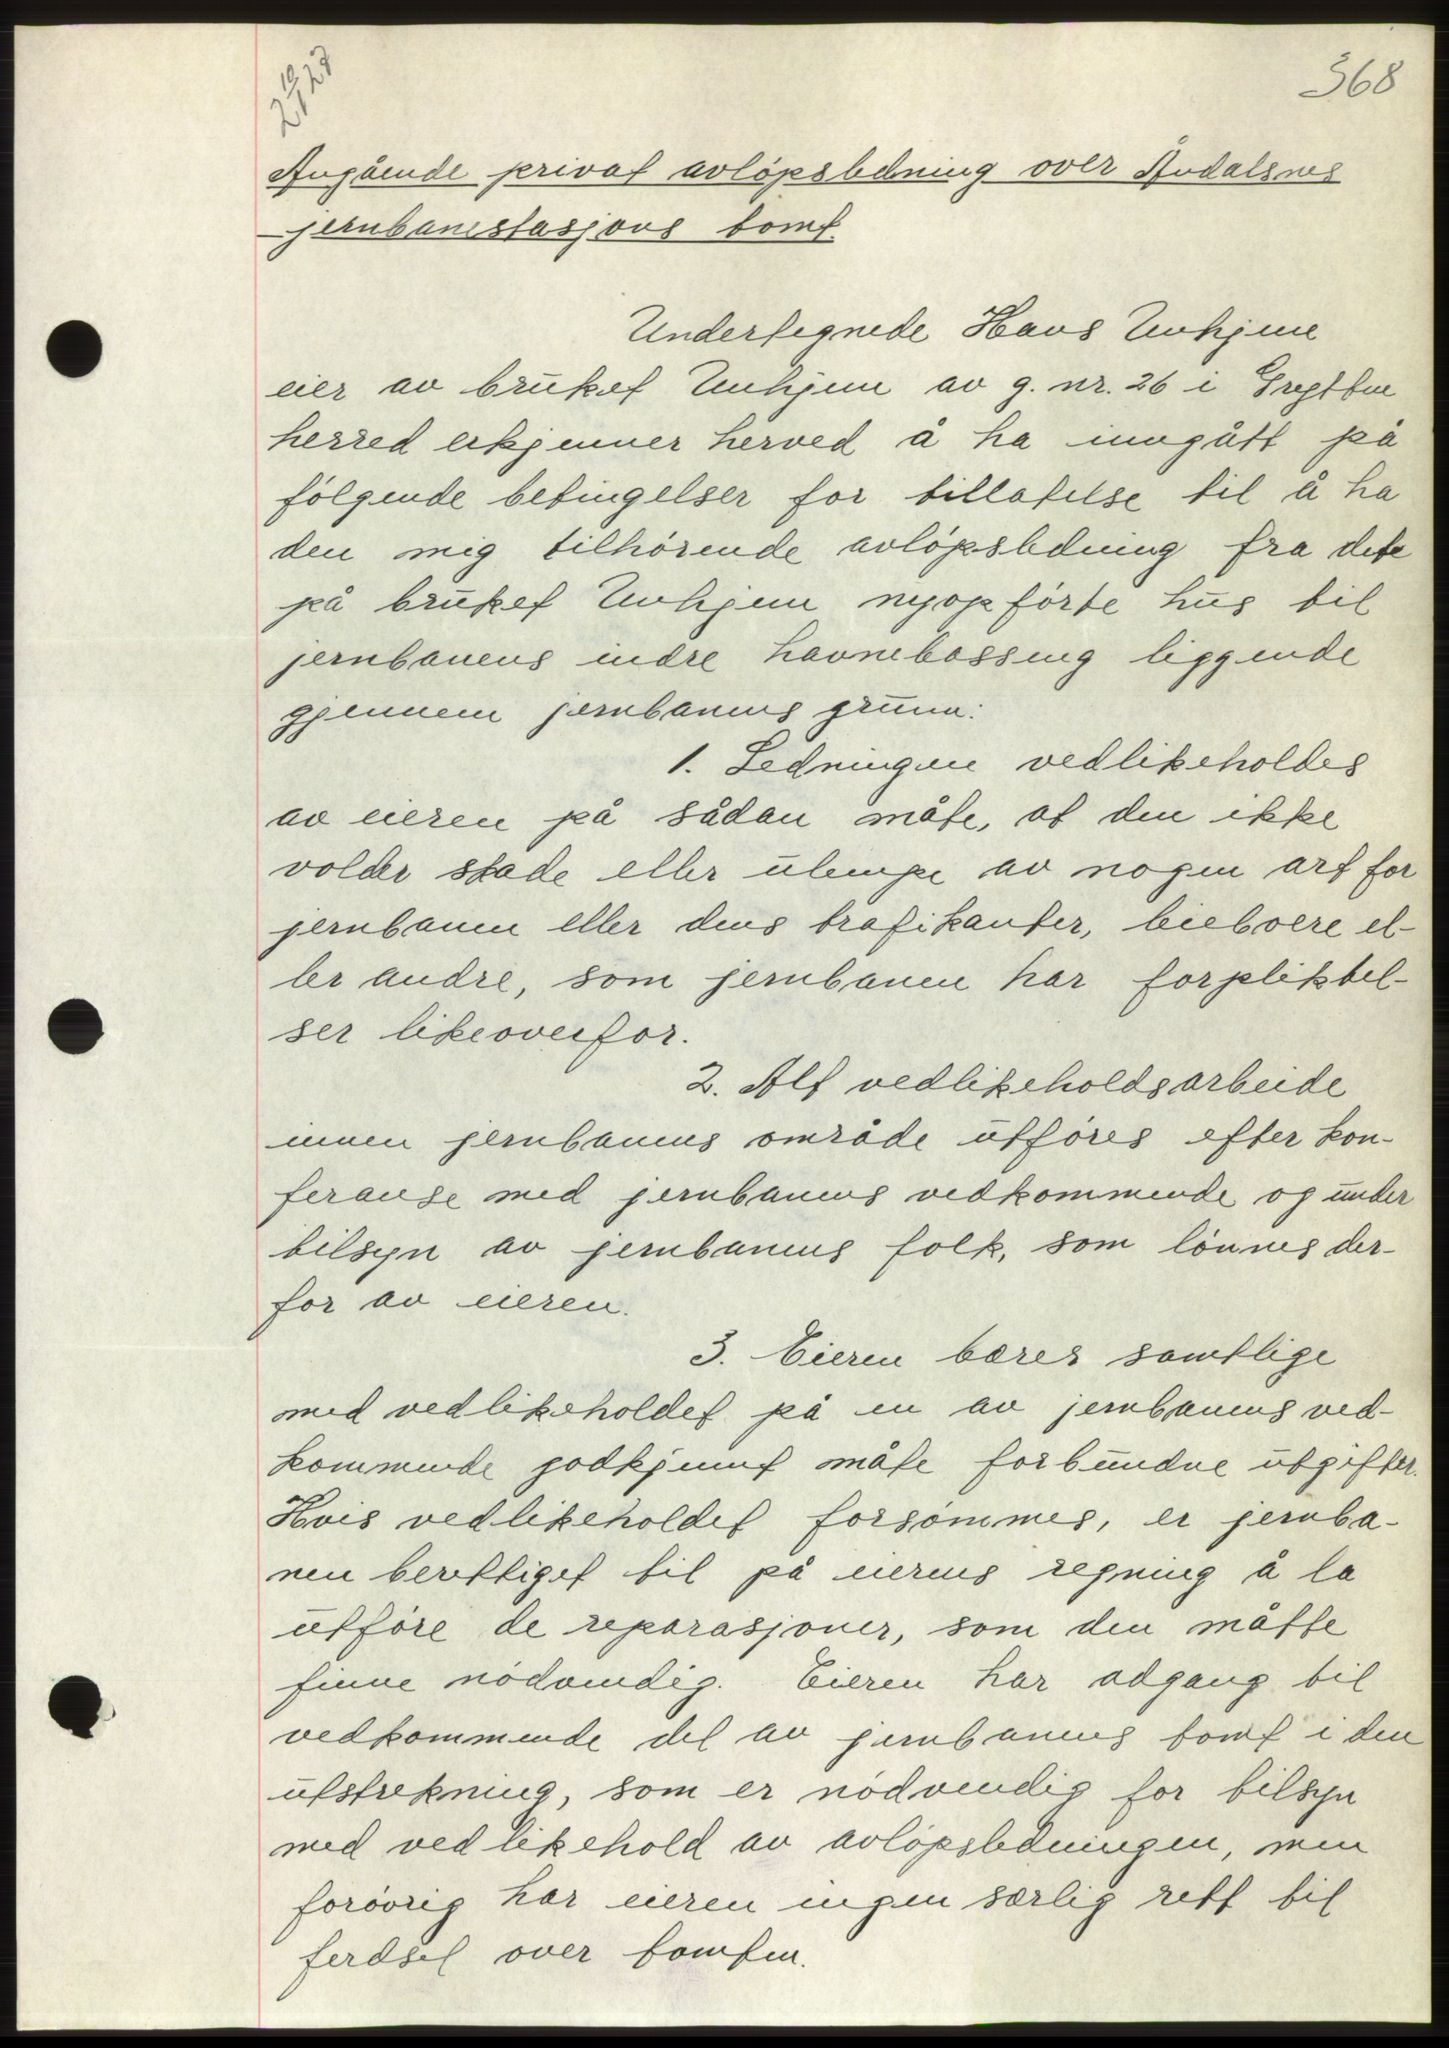 368
Angående privat avløpsledning over Åndalsnes
jernbanestasjons tomt.
Undertegnede Hans Unhjem
eier av bruket Unhjem av g. nr. 26 i Grytten
herred erkjenner herved å ha inngått på
følgende betingelser for tillatelse til å ha
den mig tilhørende avløpsledning fra dete
på bruket Unhjem nyopførte hus til
jernbanens indre havnebasseng liggende
gjennem jernbanens grunn:
1. Ledningen vedlikeholdes
av eieren på sådan måte, at den ikke
volder skade eller ulempe av nogen art for
jernbanen eller dens trafikanter, leieboere el-
ler andre, som jernbanen har forpliktel-
ser likeoverfor.
2. Alt vedlikeholdsarbeide
innen jernbanens område utføres efter kon-
feranse med jernbanens vedkommende og under
tilsyn av jernbanens folk, som lønnes der-
for av eieren.
3. Eieren bærer samtlige
med vedlikeholdet på en av jernbanens ved-
kommende godkjennt måte forbundne utgifter.
Hvis vedlikeholdet forsømmes, er jernba-
nen berettiget til på eierens regning å la
utføre de reparasjoner, som den måtte
finne nødvendig. Eieren har adgang til
vedkommende del av jernbanens tomt i den
utstrekning, som er nødvendig for tilsyn
med vedlikehold av avløpsledningen, men
forøvrig har eieren ingen særlig rett til
ferdsel over tomten.